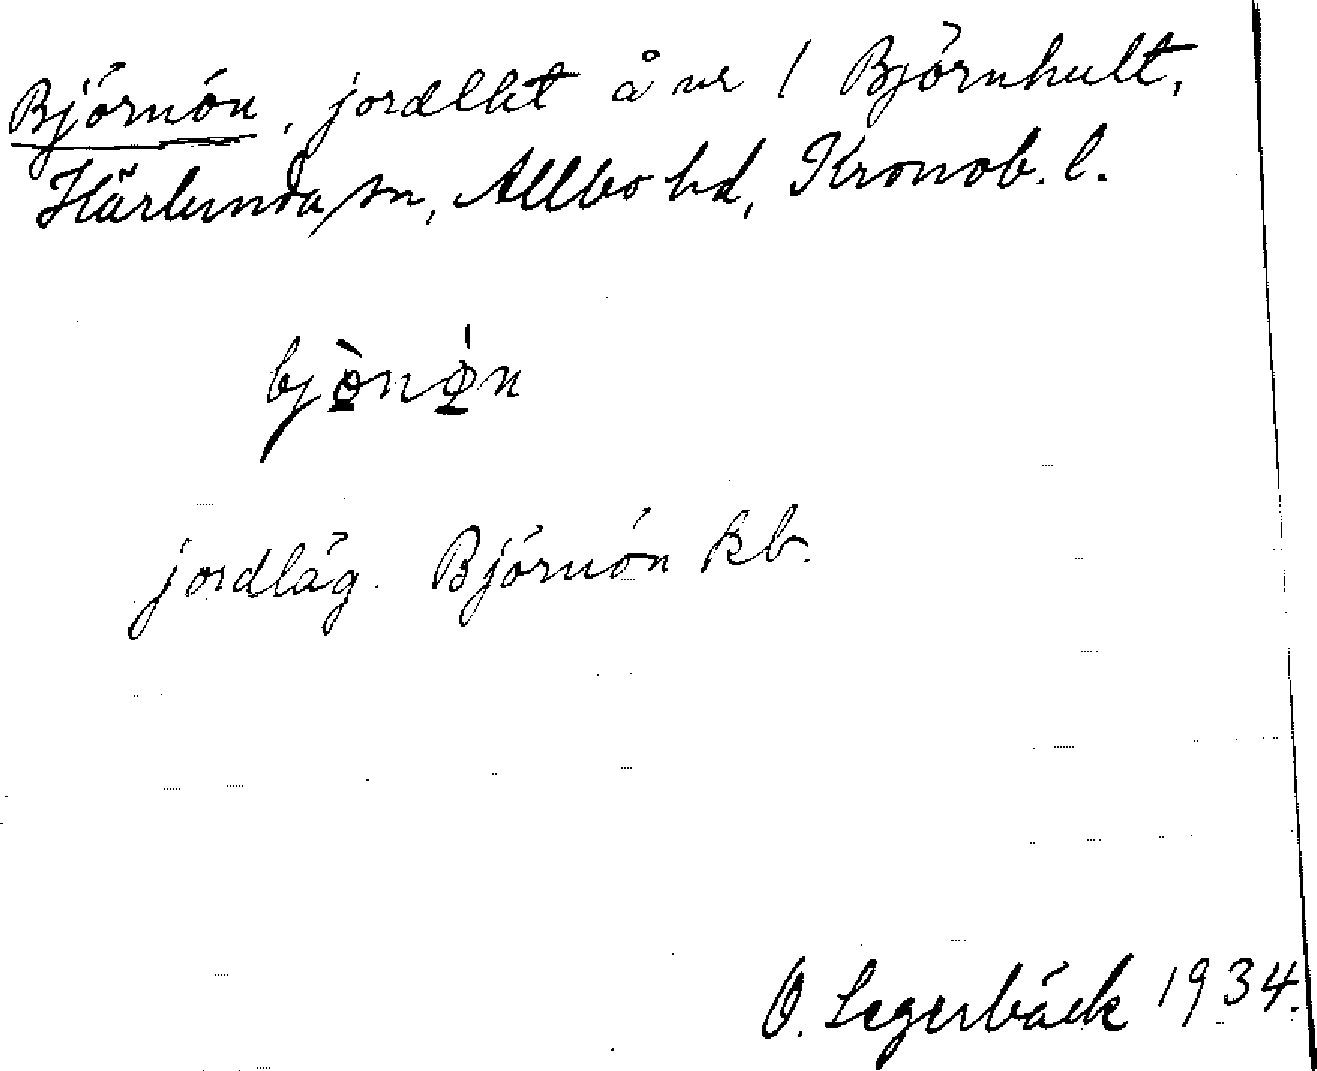 Björnön, jordlht å nr 1 Björnhult,
Härlunda sn, Allbo hd, Kronob. l.
bjò̱nǿ̱n
jordläg. Björnön kb.
O. Segerbäck 1934.